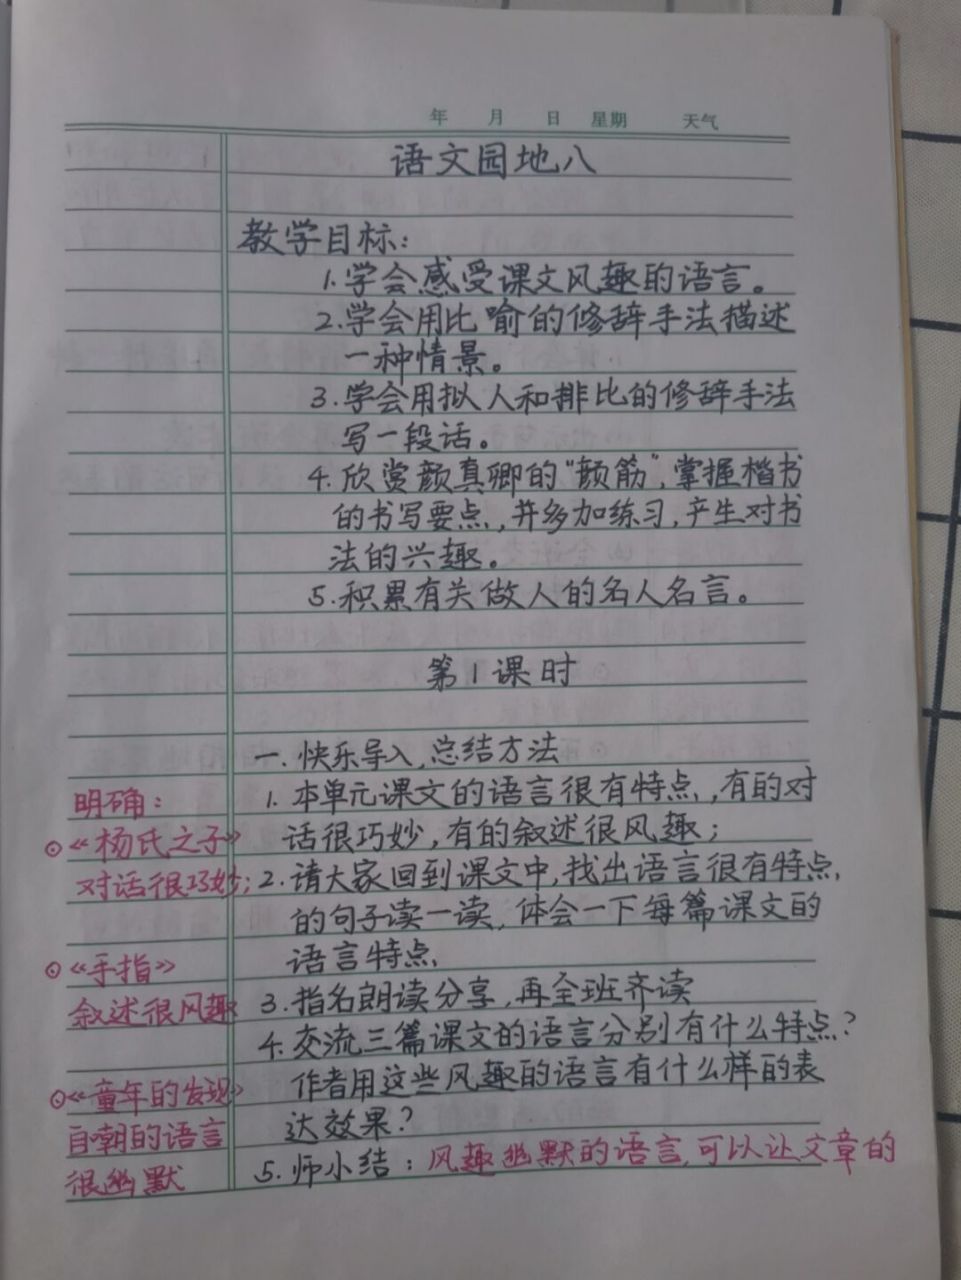 年 月 日 星期 天气
语文园地八
教学目标：
1.学会感受课文风趣的语言。
2.学会用比喻的修辞手法描述
一种情景。
3.学会用拟人和排比的修辞手法
写一段话。
4.欣赏颜真卿的“颜筋”，掌握楷书
的书写要点，并多加练习，产生对书
法的兴趣。
5.积累有关做人的名人名言。
第1课时
一.快乐导入，总结方法
1.本单元课文的语言很有特点，有的对
话很巧妙，有的叙述很风趣；
2.请大家回到课文中，找出语言很有特点
的句子读一读，体会一下每篇课文的
语言特点
3.指名朗读分享，再全班齐读
4.交流三篇课文的语言分别有什么特点？
作者用这些风趣的语言有什么样的表
达效果？
5.师小结：风趣幽默的语言，可以让文章的
明确：
⊙《杨氏之子》
对话很巧妙；
⊙《手指》
叙述很风趣
⊙《童年的发现》
自嘲的语言
很幽默